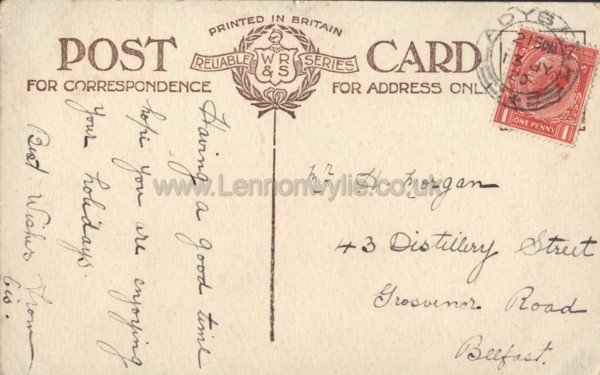 PRINTED IN BRITAIN
POST CARD
RELIABLE WR&S SERIES
FOR CORRESPONDENCE
FOR ADDRESS ONLY
ONE PENNY
1 1
Having a good time
hope you are enjoying
your holidays.
Best Wishes from
Cis.
www.Lennonwylie.co.uk
Mr H Morgan
43 Distillery Street
Grosvenor Road
Belfast.